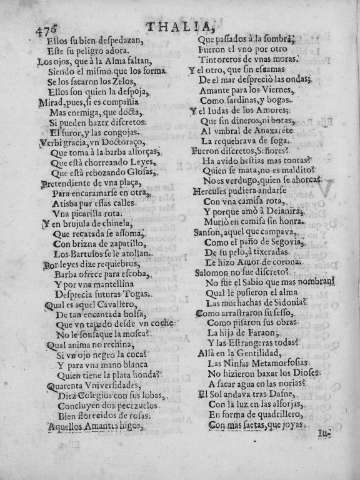 476 THALIA,
Ellos su bien despedazan,
Este su peligro adora.
Los ojos, que à la Alma faltan,
Siendo el mismo que los forma
Se los sacaron los Zelos,
Ellos son quien la despoja,
Mirad, pues, si es compañia
Mas enemiga, que docta,
Si pueden hazer discretos
El furor, y las congojas.
Verbi gracia, vn Doctoraço,
Que toma à la barba alforças,
Que està chorreando Leyes,
Que està rebozando Glosas,
Pretendiente de vna plaça,
Para encaramarse en otra,
Atisba por essas calles
Vna picarilla rota.
Y en bruxula de chinela,
Que recatada se assoma,
Con brizna de zapatillo,
Los Bartulos se le atollan.
Por leyes dize requiebros,
Barba ofrece para escoba,
Y por vna mantellina
Desprecia futuras Togas.
Qual es aquel Cavallero,
De tan encantada bolsa,
Que vn tapado desde vn coche
No le sonsaque la mosca?
Qual anima no rechina,
Si vn ojo negro la coca?
Y para vna mano blanca
Quien tiene la plata honda?
Quarenta Vniversidades,
Diez Colegios con sus lobas,
Concluyen dos pecezuelos
Bien florecidos de rosas.
Aquellos Amantes higos,
Que passados à la sombra,
Fueron el vno por otro
Tintoreros de vnas moras.
Y el otro, que sin escamas
De el mar despreciò las ondas,
Amante para los Viernes,
Como sardinas, y bogas.
Y el Iudas de los Amores,
Que sin dineros, ni botas,
Al vmbral de Anaxarete
La requebrava de soga.
Fueron discretos, Señores?
Ha avido bestias mas tontas?
Quien se mata, no es maldito?
No es verdugo, quien se ahorca?
Hercules pudiera andarse
Con vna camisa rota,
Y porque amò à Deianira,
Muriò en camisa sin honra.
Sanson, aquel que campava,
Como el paño de Segovia,
De su pelo, à tixeradas
Le hizo Amor de corona.
Salomon no fue discreto?
No fue el Sabio que mas nombran?
Qual le pusieron el alma
Las muchachas de Sidonia?
Como arrastraron su sesso,
Como pisaron sus obras
La hija de Faraon,
Y las Estrangeras todas?
Allà en la Gentilidad,
Las Ninfas Metamorfosias
No hizieron baxar los Dioses
A sacar agua en las norias?
El Sol andava tras Dafne,
Con la luz en las alforjas,
En forma de quadrillero,
Con mas saetas, que joyas.
Iu-